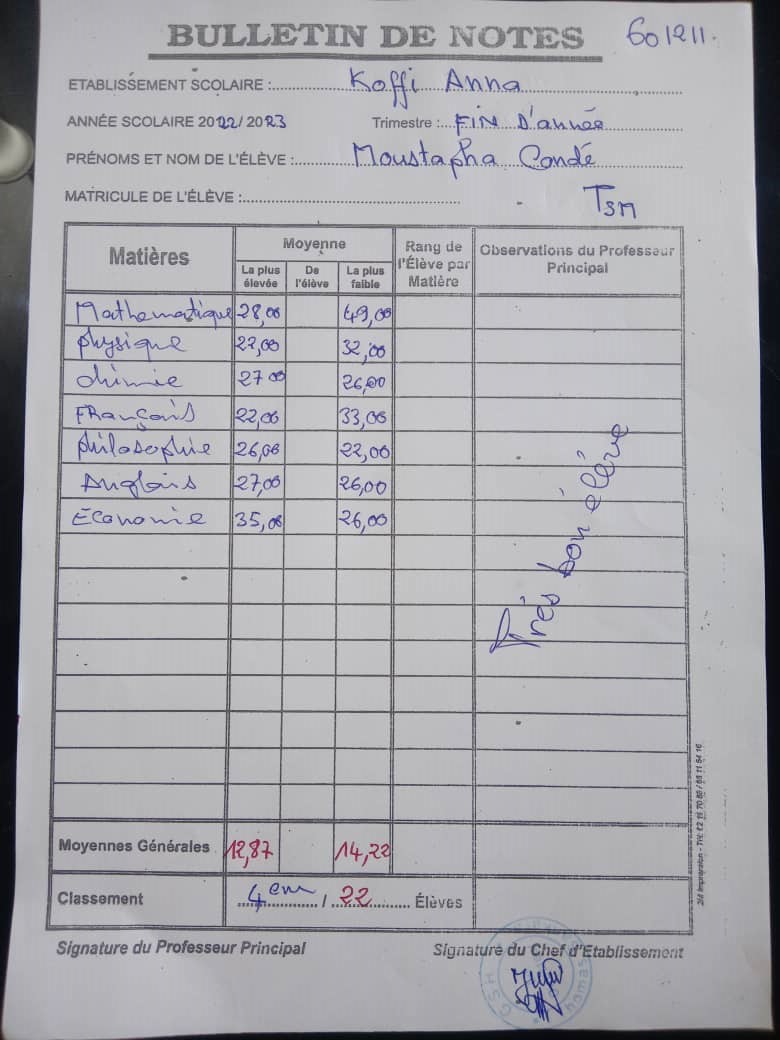 BULLETIN DE NOTES 601211.
ETABLISSEMENT SCOLAIRE : Koffi Anna
ANNÉE SCOLAIRE 2022/ 2023 Trimestre : FIN D'année
PRÉNOMS ET NOM DE L'ÉLÈVE : Moustapha Condé
MATRICULE DE L'ÉLÈVE :
TSM
Matières Moyenne Rang de l'Élève par Matière Observations du Professeur Principal
La plus élevée De l'élève La plus faible
Mathematique 28,00 49,00
physique 22,00 32,00
chimie 27 00 26,00
FRançais 22,00 33,00
philosophie 26,00 22,00
Anglais 27,00 26,00
Economie 35,00 26,00
Très bon élève
Moyennes Générales 12,87 14,22
Classement 4em / 22 Élèves
Signature du Professeur Principal Signature du Chef d'Etablissement
GSH Thomas